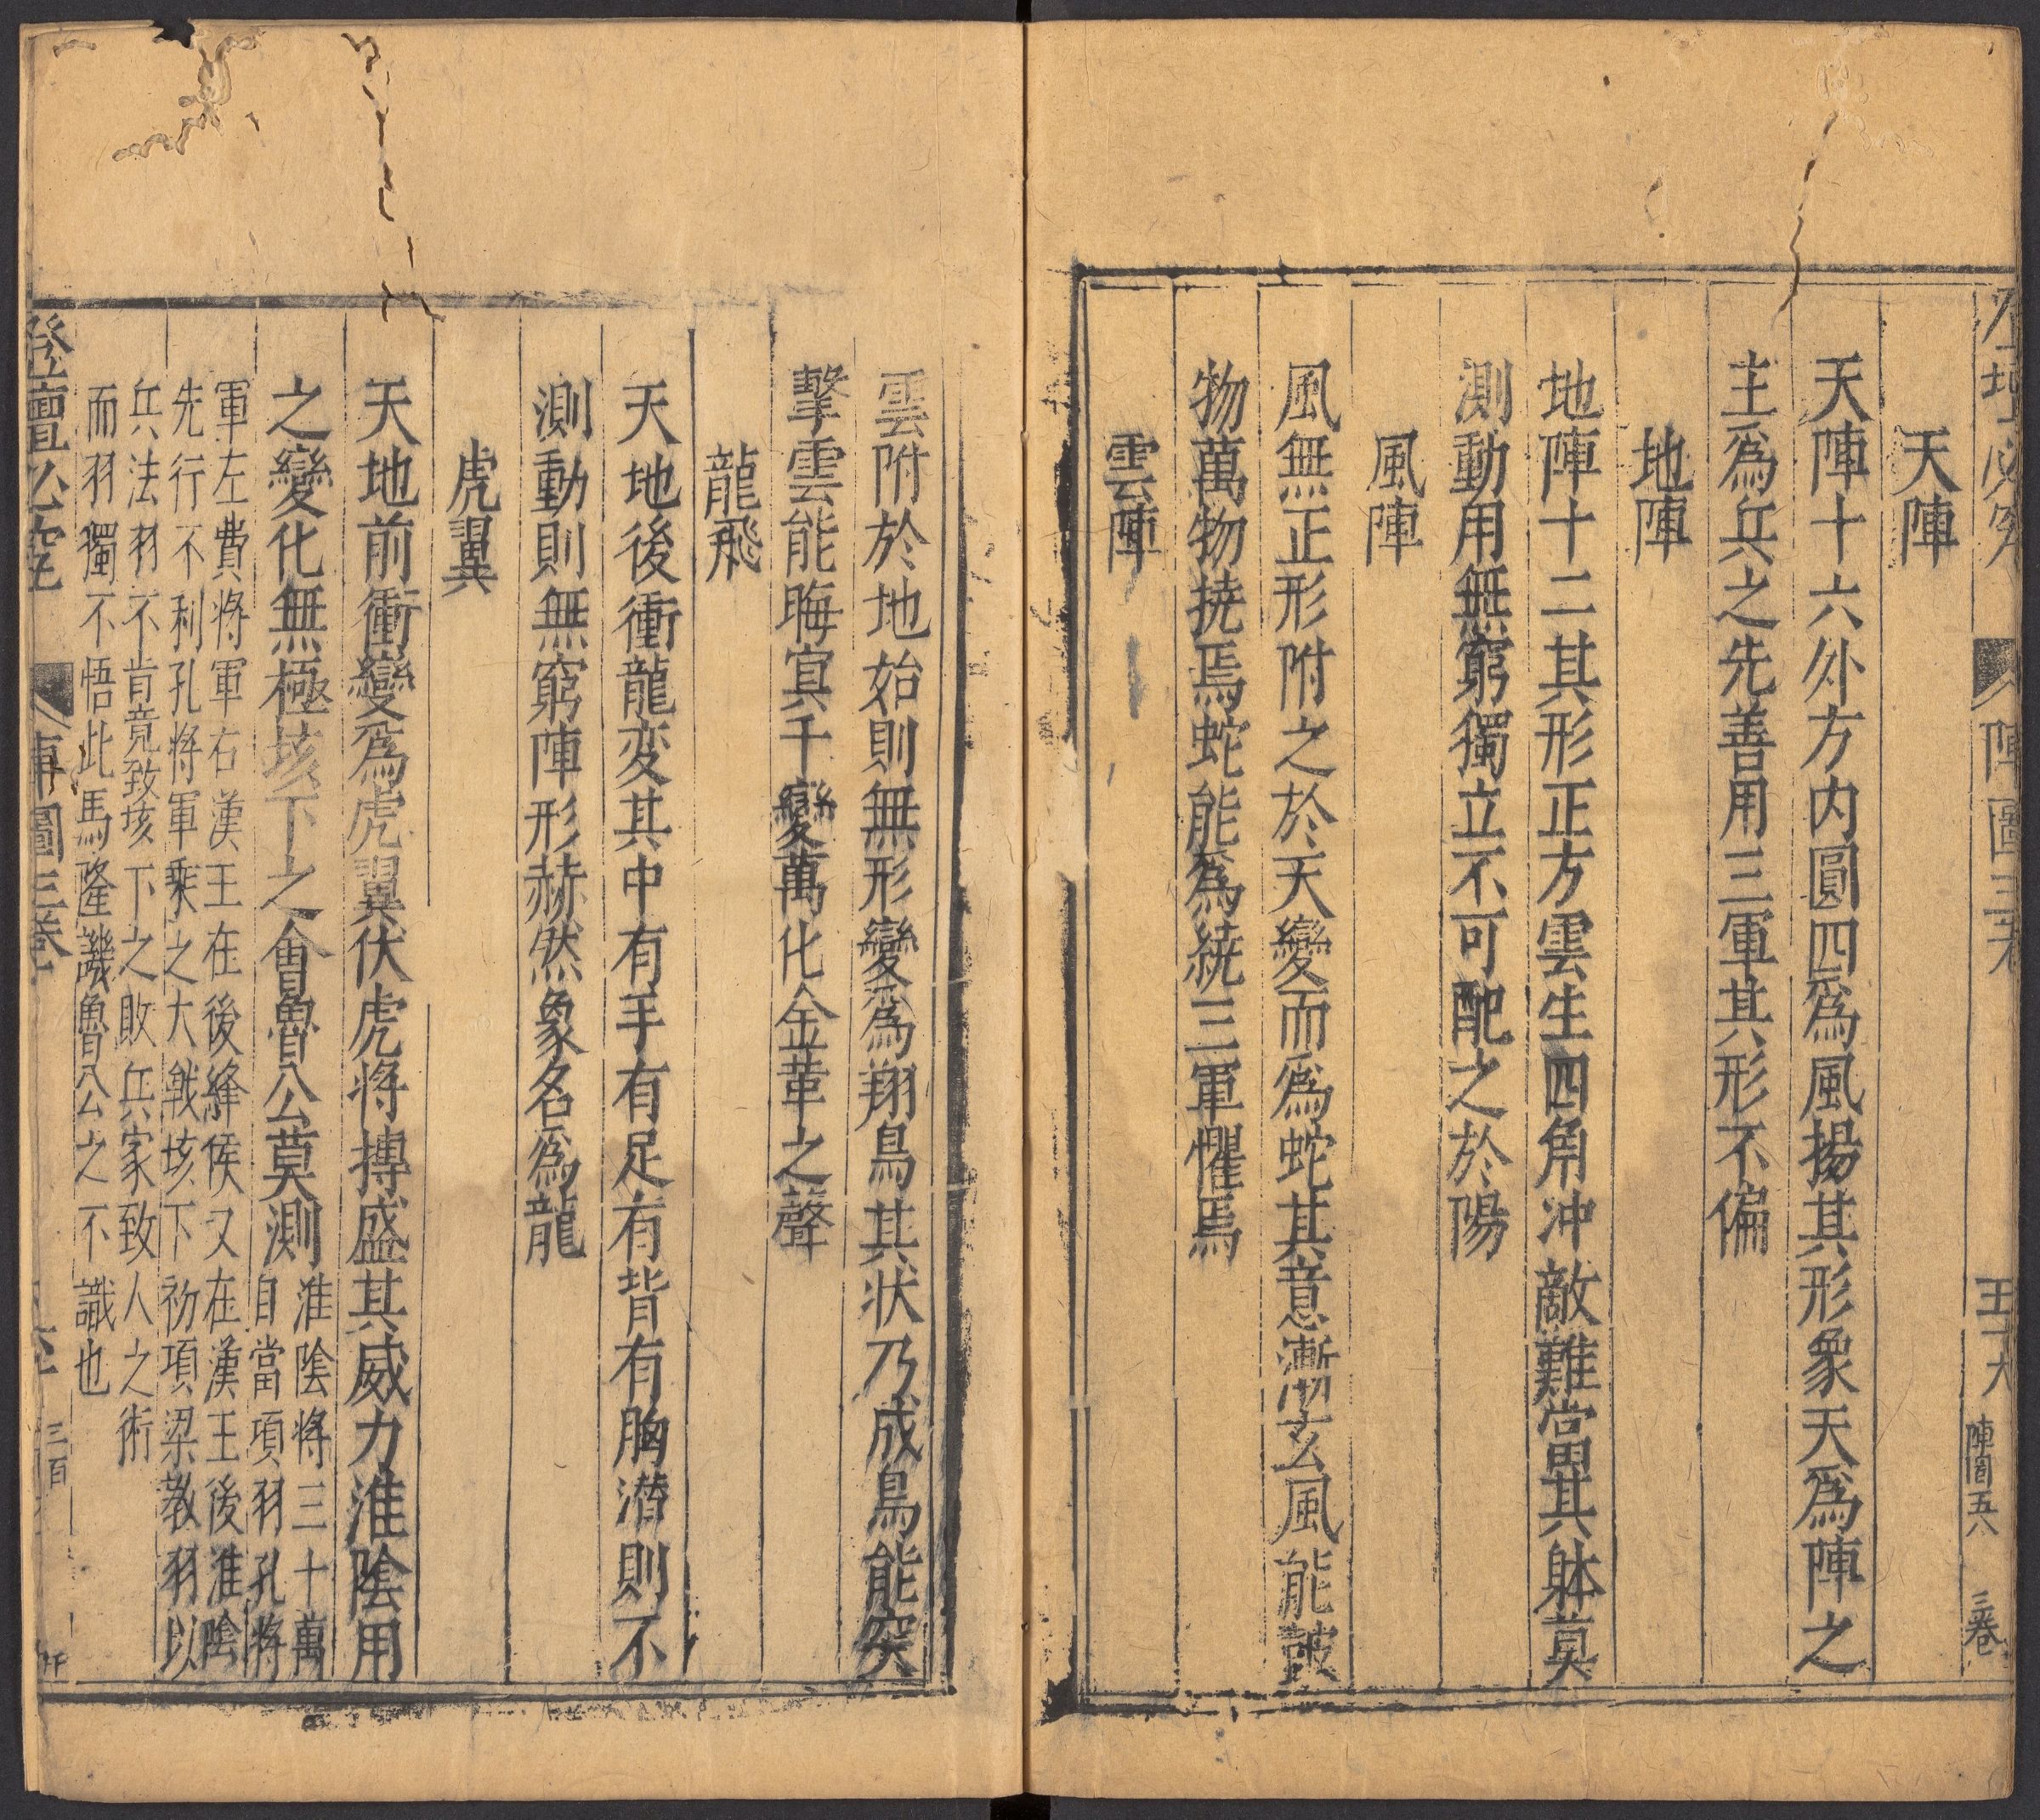 陣圖三卷
天陣
天陣十六外方内圓四爲風揚其形象天爲陣之
主爲兵之先善用三軍其形不偏
地陣
地陣十二其形正方雲生四角冲敵難當其躰莫
測動用無窮獨立不可配之於陽
風陣
風無正形附之於天變而爲蛇其意漸玄風能鼓
物萬物撓焉蛇能爲繞三軍懼焉
雲陣
雲附於地始則無形變爲翔鳥其狀乃成鳥能突
擊雲能晦寘千變萬化金革之聲
龍飛
天地後衝龍変其中有手有足有背有胸潜則不
測動則無窮陣形赫然象名爲龍
虎翼
天地前衝變爲虎翼伏虎将搏盛其威力淮陰用
之變化無極垓下之會魯公莫測
淮陰将三十萬
自當項羽孔將
軍左費將軍右漢王在後絳侯又在漢王後淮陰
先行不利孔將軍乘之大戰垓下初項梁教羽以
兵法羽不肯竟致垓下之敗兵家致人之術
而羽獨不悟此馬隆譏魯公之不識也
登壇必究
陣圖三卷
三百